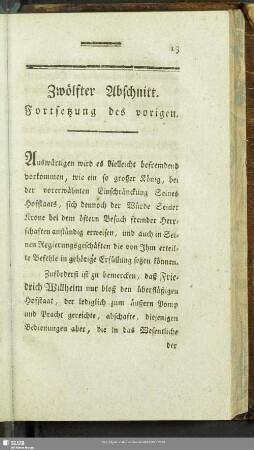 13
Zwölfter Abschnitt.
Fortsetzung des vorigen.
Auswärtigen wird es vielleicht befremdend
vorkommen, wie ein so großer König, bei
der vorerwähnten Einschränckung Seines
Hofstaats, sich dennoch der Würde Seiner
Krone bei dem öftern Besuch fremder Herr-
schaften anständig erweisen, und auch in Sei-
nen Regierungsgeschäften die von Ihm erteil-
te Befehle in gehörige Erfüllung setzen können.
Zuförderst ist zu bemercken, daß Frie-
drich Willhelm nur bloß den überflüßigen
Hofstaat, der lediglich zum äußern Pomp
und Pracht gereichte, abschafte, diejenigen
Bedienungen aber, die in das Wesentliche
der